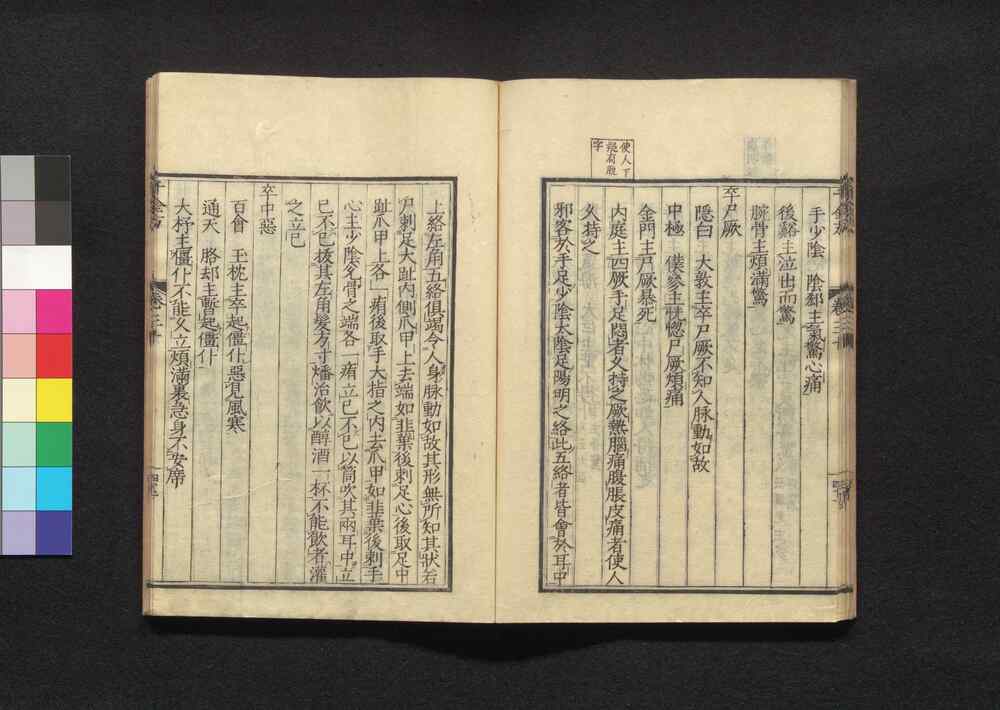 手少陰　陰郄主氣驚心痛
後谿主泣出而驚
腕骨主煩滿驚
卒尸厥
隱白　大敦主卒尸厥不知人脉動如故
中極　僕參主恍惚尸厥煩痛
金門主尸厥暴死
使人下
疑有脫
字
内庭主四厥手足悶者久持之厥熱腦痛腹脹皮痛者使人
久持之
邪客於手足少陰太陰足陽明之絡此五絡者皆會於耳中
上絡左角五絡俱竭令人身脉動如故其形無所知其狀若
尸刺足大趾内側爪甲上去端如韭葉後刺足心後取足中
趾爪甲上各一痏後取手大指之内去爪甲如韭葉後刺手
心主少陰兌骨之端各一痏立已不已以筒吹其兩耳中立
已不已拔其左角髮方寸燔治飲以醇酒一杯不能飲者灌
之立已
卒中惡
百會　玉枕主卒起僵仆惡見風寒
通天　胳却主暫起僵仆
大杼主僵仆不能久立煩滿裏急身不安席